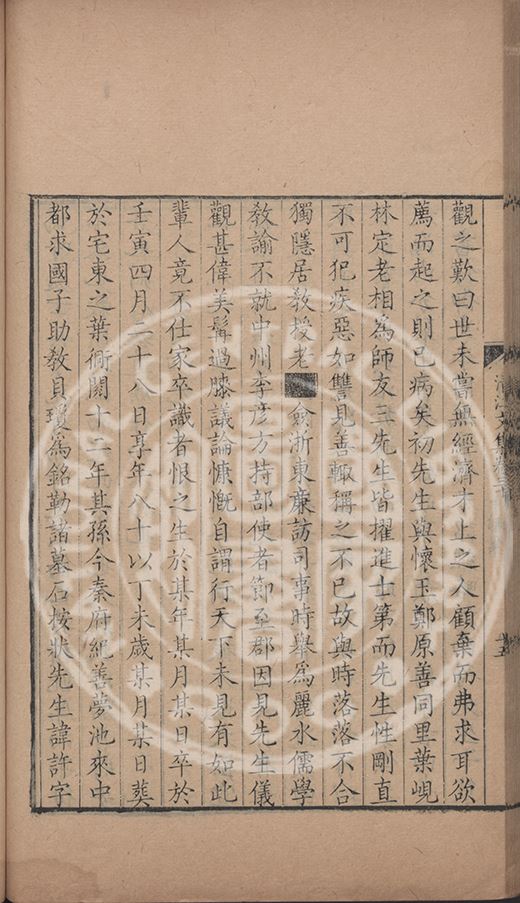 觀之歎曰世未嘗無經濟才上之人顧棄而弗求耳欲
薦而起之則已病矣初先生與懷玉鄭原善同里葉峴
林定老相為師友三先生皆擢進士第而先生性剛直
不可犯疾惡如讐見善輒稱之不已故與時落落不合
獨隱居敎授老僉浙東亷訪司事時舉為麗水儒學
敎諭不就中州李彥方持部使者節至郡因見先生儀
觀甚偉美髯過膝議論慷慨自謂行天下未見有如此
輩人竟不仕家卒識者恨之生於某年某月某日卒於
壬寅四月二十八日享年八十以丁未歲某月某日葬
於宅東之葉衕閱十二年其孫今秦府紀善夢池來中
都求國子助敎貝瓊為銘勒諸墓石按狀先生諱許字